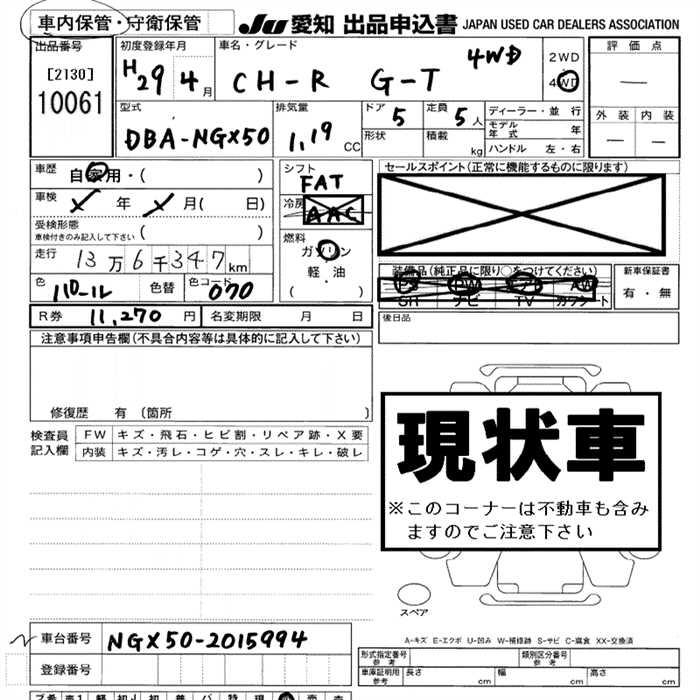 車内保管・守衛保管 JU 愛知 出品申込書 JAPAN USED CAR DEALERS ASSOCIATION
出品番号 初度登録年月 車名・グレード 2WD 評価点
[2130] H29 4月 CH-R G-T 4WD 4WD —
10061
型式 排気量 ドア 5 定員 5人 ディーラー・並行 外装 内装
DBA-NGX50 1,19 CC 形状 積載 kg モデル年式 年 — —
ハンドル 左・右
車歴 自家用・( ) シフト FAT セールスポイント(正常に機能するものに限ります)
車検 年 月( 日) 冷房 AAC
受検形態 ( )
車検付きのみ記入して下さい
燃料 ガソリン
走行 13万6千347km 軽・油
( )
装備品(純正品に限り○をつけてください) 新車保証書
PS PW AW
SH ナビ TV カワシート 有・無
色 パール 色替 色コード 070
R券 11,270 円 名変期限 月 日 後日品
注意事項申告欄(不具合内容等は具体的に記入して下さい)
修復歴 有(箇所 )
現状車
※このコーナーは不動車も含み
ますのでご注意下さい
検査員 FW キズ・飛石・ヒビ割・リペア跡・X要
記入欄 内装 キズ・汚レ・コゲ・穴・スレ・キレ・破レ
スペア
車台番号 NGX50-2015994
A-キズ E-エクボ U-凹み W-補修跡 S-サビ C-腐食 XX-交換済
登録番号
形式指定番号 参考 類別区分番号 参考
車庫証明用 参考 長さ cm 幅 cm 高さ cm